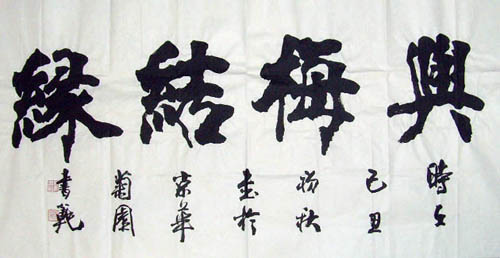 與梅結緣
時在
己丑
初秋
書於
京華
菊園
書